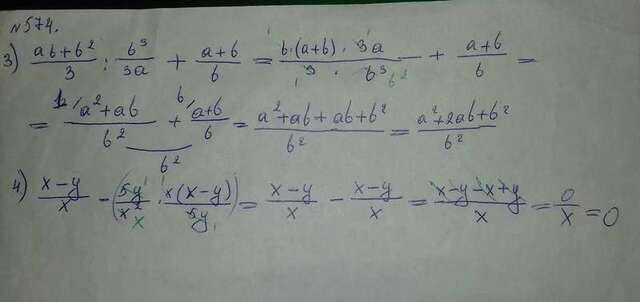 №574.
3) \frac{ab+b^2}{3} : \frac{b^3}{3a} + \frac{a+b}{b} = \frac{b·(a+b)·3a}{3·b^3} + \frac{a+b}{b} =
= \frac{a^2+ab}{b^2} + \frac{a+b}{b} = \frac{a^2+ab+ab+b^2}{b^2} = \frac{a^2+2ab+b^2}{b^2}
4) \frac{x-y}{x} - \left(\frac{5y}{x^2} · \frac{x(x-y)}{5y}\right) = \frac{x-y}{x} - \frac{x-y}{x} = \frac{x-y-x+y}{x} = \frac{0}{x} = 0